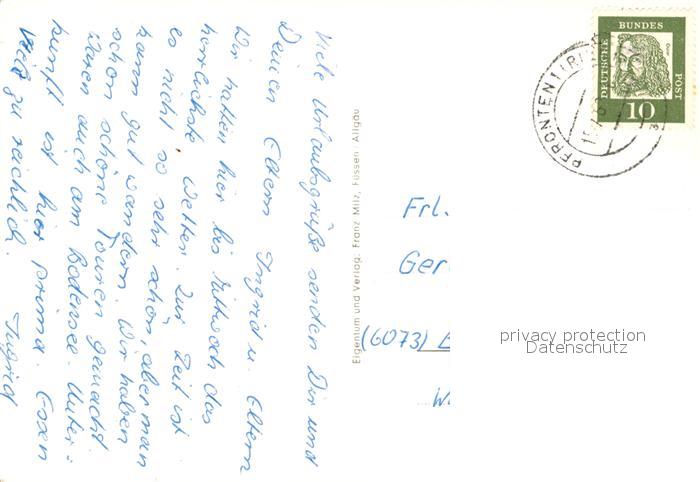 Viele Urlaubsgrüße senden Dir und
Deinen Eltern Ingrid u. Eltern
Wir hatten hier bis Mittwoch das
herrlichste Wetter. Zur Zeit ist
es nicht so sehr schön, aber man
kann gut wandern. Wir haben
schon schöne Touren gemacht
Waren auch am Bodensee. Unter=
kunft ist hier prima. Essen
viel zu reichlich. Ingrid
Eigentum und Verlag: Franz Milz, Füssen / Allgäu
DEUTSCHE BUNDES POST
Dürer
10
PFRONTEN 1
Frl.
Ger
(6073)
privacy protection
Datenschutz